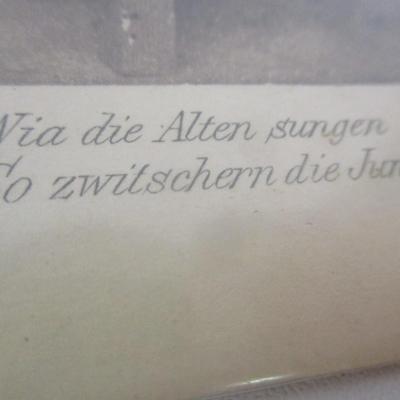 Wia die Alten sungen
So zwitschern die Jun